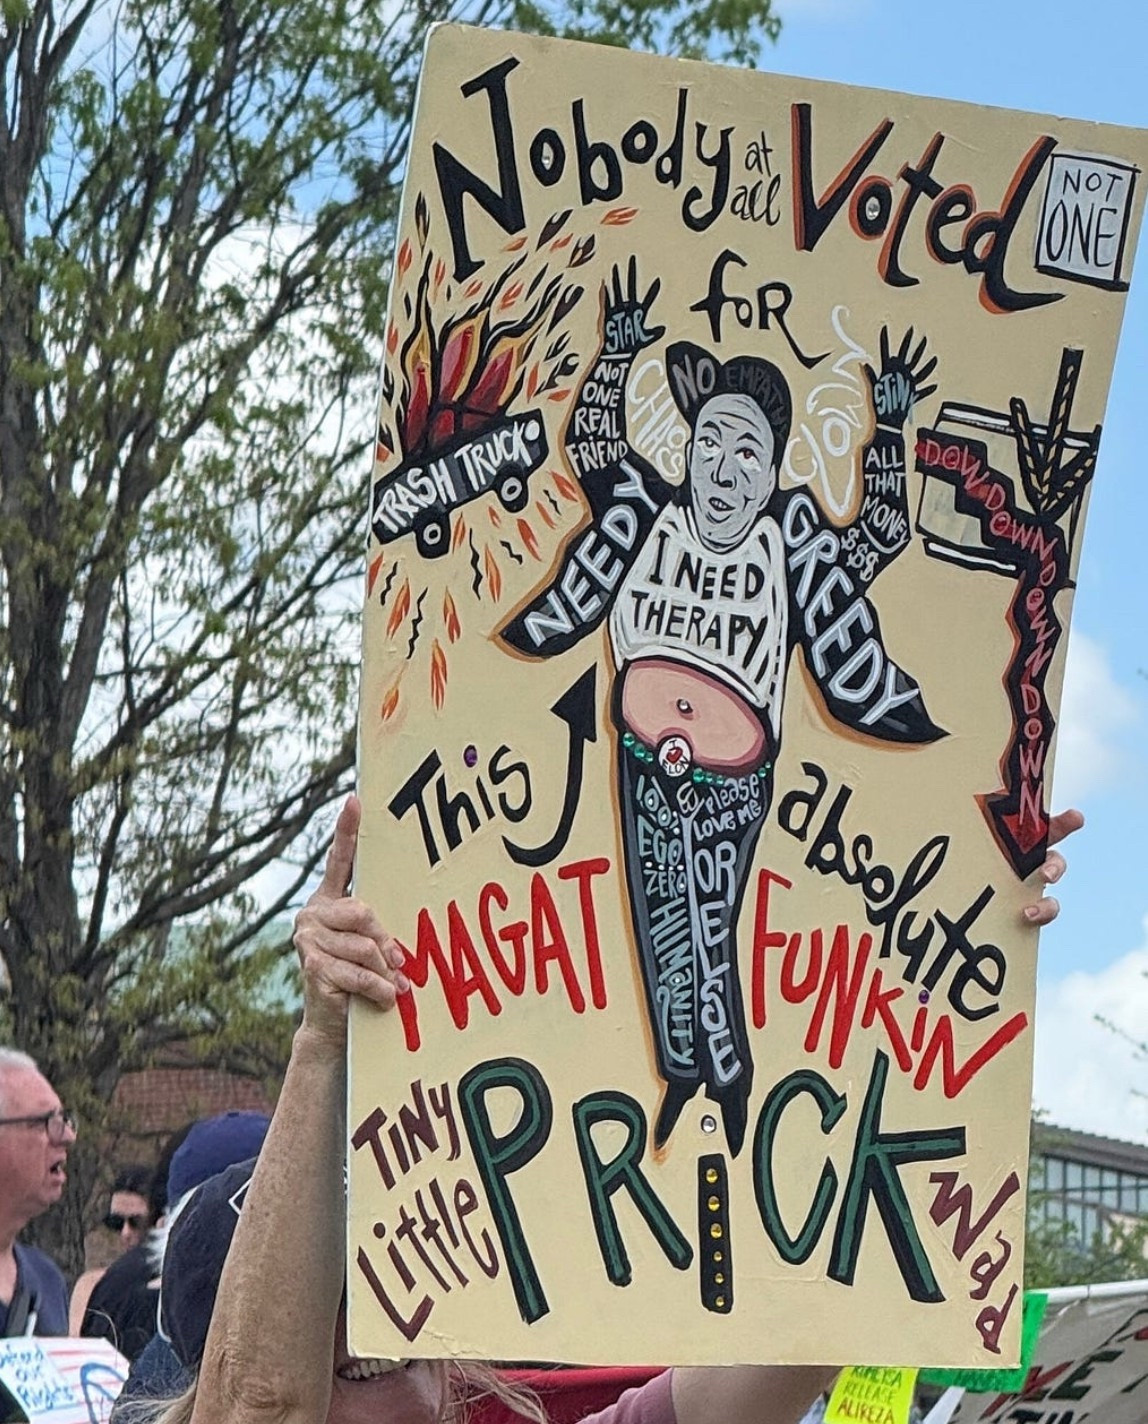 Nobody at all Voted
NOT
ONE
for
STAR
NOT
ONE
REAL
FRIEND
NO EMPATHY
STINK
ALL
THAT
MONEY
$$$
TRASH TRUCK
DOWN DOWN DOWN DOWN DOWN
NEEDY
GREEDY
I NEED
THERAPY
I
ELON
This
absolute
100%
EGO
ZERO
HUMANITY
Please
LOVE ME
OR
ELSE
MAGAT
FUNKiN
TiNy
Little
PRiCK
Wad
Defend
our
Rights
RELEASE
ALIREZA